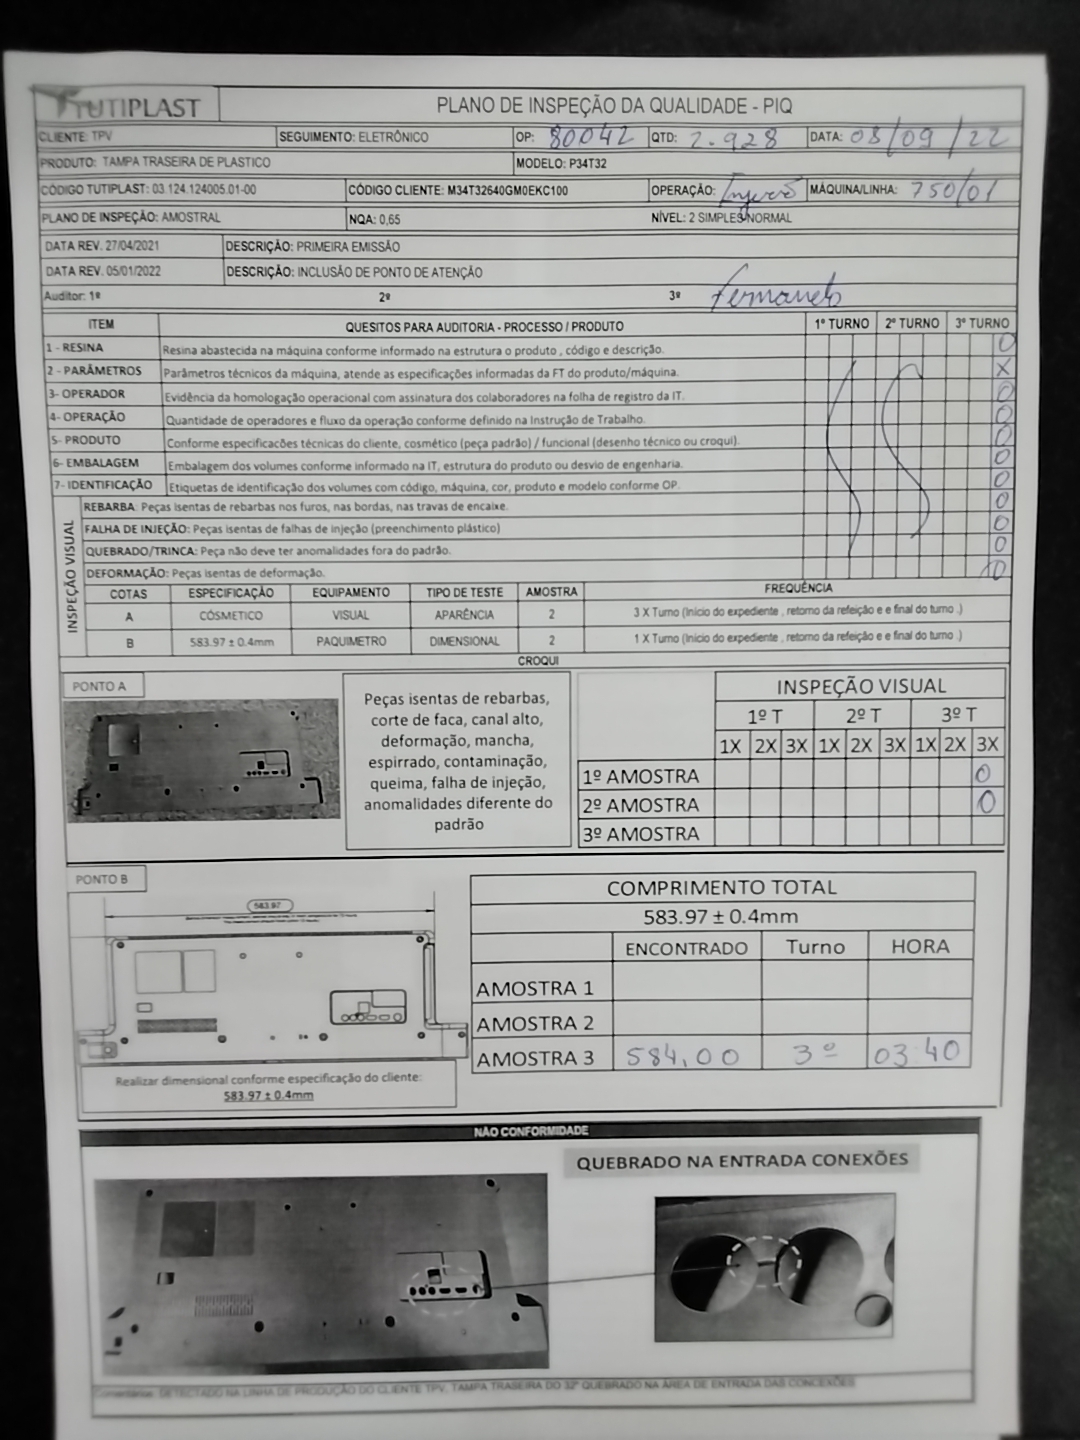 TUTIPLAST
PLANO DE INSPEÇÃO DA QUALIDADE - PIQ
CLIENTE: TPV SEGUIMENTO: ELETRÔNICO OP: 80042 QTD: 2.928 DATA: 08/09/22
PRODUTO: TAMPA TRASEIRA DE PLASTICO MODELO: P34T32
CÓDIGO TUTIPLAST: 03.124.124005.01-00 CÓDIGO CLIENTE: M34T32640GM0EKC100 OPERAÇÃO: Injeção MÁQUINA/LINHA: 750/01
PLANO DE INSPEÇÃO: AMOSTRAL NQA: 0,65 NÍVEL: 2 SIMPLES/NORMAL
DATA REV. 27/04/2021 DESCRIÇÃO: PRIMEIRA EMISSÃO
DATA REV. 05/01/2022 DESCRIÇÃO: INCLUSÃO DE PONTO DE ATENÇÃO
Auditor: 1º 2º 3º Fernando
ITEM QUESITOS PARA AUDITORIA - PROCESSO / PRODUTO 1º TURNO 2º TURNO 3º TURNO
1 - RESINA Resina abastecida na máquina conforme informado na estrutura o produto , código e descrição. O
2 - PARÂMETROS Parâmetros técnicos da máquina, atende as especificações informadas da FT do produto/máquina. X
3- OPERADOR Evidência da homologação operacional com assinatura dos colaboradores na folha de registro da IT. O
4- OPERAÇÃO Quantidade de operadores e fluxo da operação conforme definido na Instrução de Trabalho. O
5- PRODUTO Conforme especificacões técnicas do cliente, cosmético (peça padrão) / funcional (desenho técnico ou croqui). O
6- EMBALAGEM Embalagem dos volumes conforme informado na IT, estrutura do produto ou desvio de engenharia. O
7- IDENTIFICAÇÃO Etiquetas de identificação dos volumes com código, máquina, cor, produto e modelo conforme OP. O
INSPEÇÃO VISUAL
REBARBA: Peças isentas de rebarbas nos furos, nas bordas, nas travas de encaixe. O
FALHA DE INJEÇÃO: Peças isentas de falhas de injeção (preenchimento plástico) O
QUEBRADO/TRINCA: Peça não deve ter anomalidades fora do padrão. O
DEFORMAÇÃO: Peças isentas de deformação. O
COTAS ESPECIFICAÇÃO EQUIPAMENTO TIPO DE TESTE AMOSTRA FREQUÊNCIA
A CÓSMETICO VISUAL APARÊNCIA 2 3 X Turno (Inicio do expediente , retorno da refeição e e final do turno .)
B 583.97 ± 0.4mm PAQUIMETRO DIMENSIONAL 2 1 X Turno (Inicio do expediente , retorno da refeição e e final do turno .)
CROQUI
PONTO A
Peças isentas de rebarbas,
corte de faca, canal alto,
deformação, mancha,
espirrado, contaminação,
queima, falha de injeção,
anomalidades diferente do
padrão
INSPEÇÃO VISUAL
1º T 2º T 3º T
1X 2X 3X 1X 2X 3X 1X 2X 3X
1º AMOSTRA O
2º AMOSTRA O
3º AMOSTRA
PONTO B
583.97
Realizar dimensional conforme especificação do cliente:
583.97 ± 0.4mm
COMPRIMENTO TOTAL
583.97 ± 0.4mm
ENCONTRADO Turno HORA
AMOSTRA 1
AMOSTRA 2
AMOSTRA 3 584,00 3º 03:40
NÃO CONFORMIDADE
QUEBRADO NA ENTRADA CONEXÕES
Comentários: DETECTADO NA LINHA DE PRODUÇÃO DO CLIENTE TPV, TAMPA TRASEIRA DO 32" QUEBRADO NA ÁREA DE ENTRADA DAS CONCEXÕES